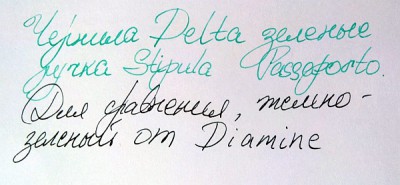 Чернила Delta зеленые
ручка Stipula Passaporto.
Для сравнения, темно-
зеленый от Diamine